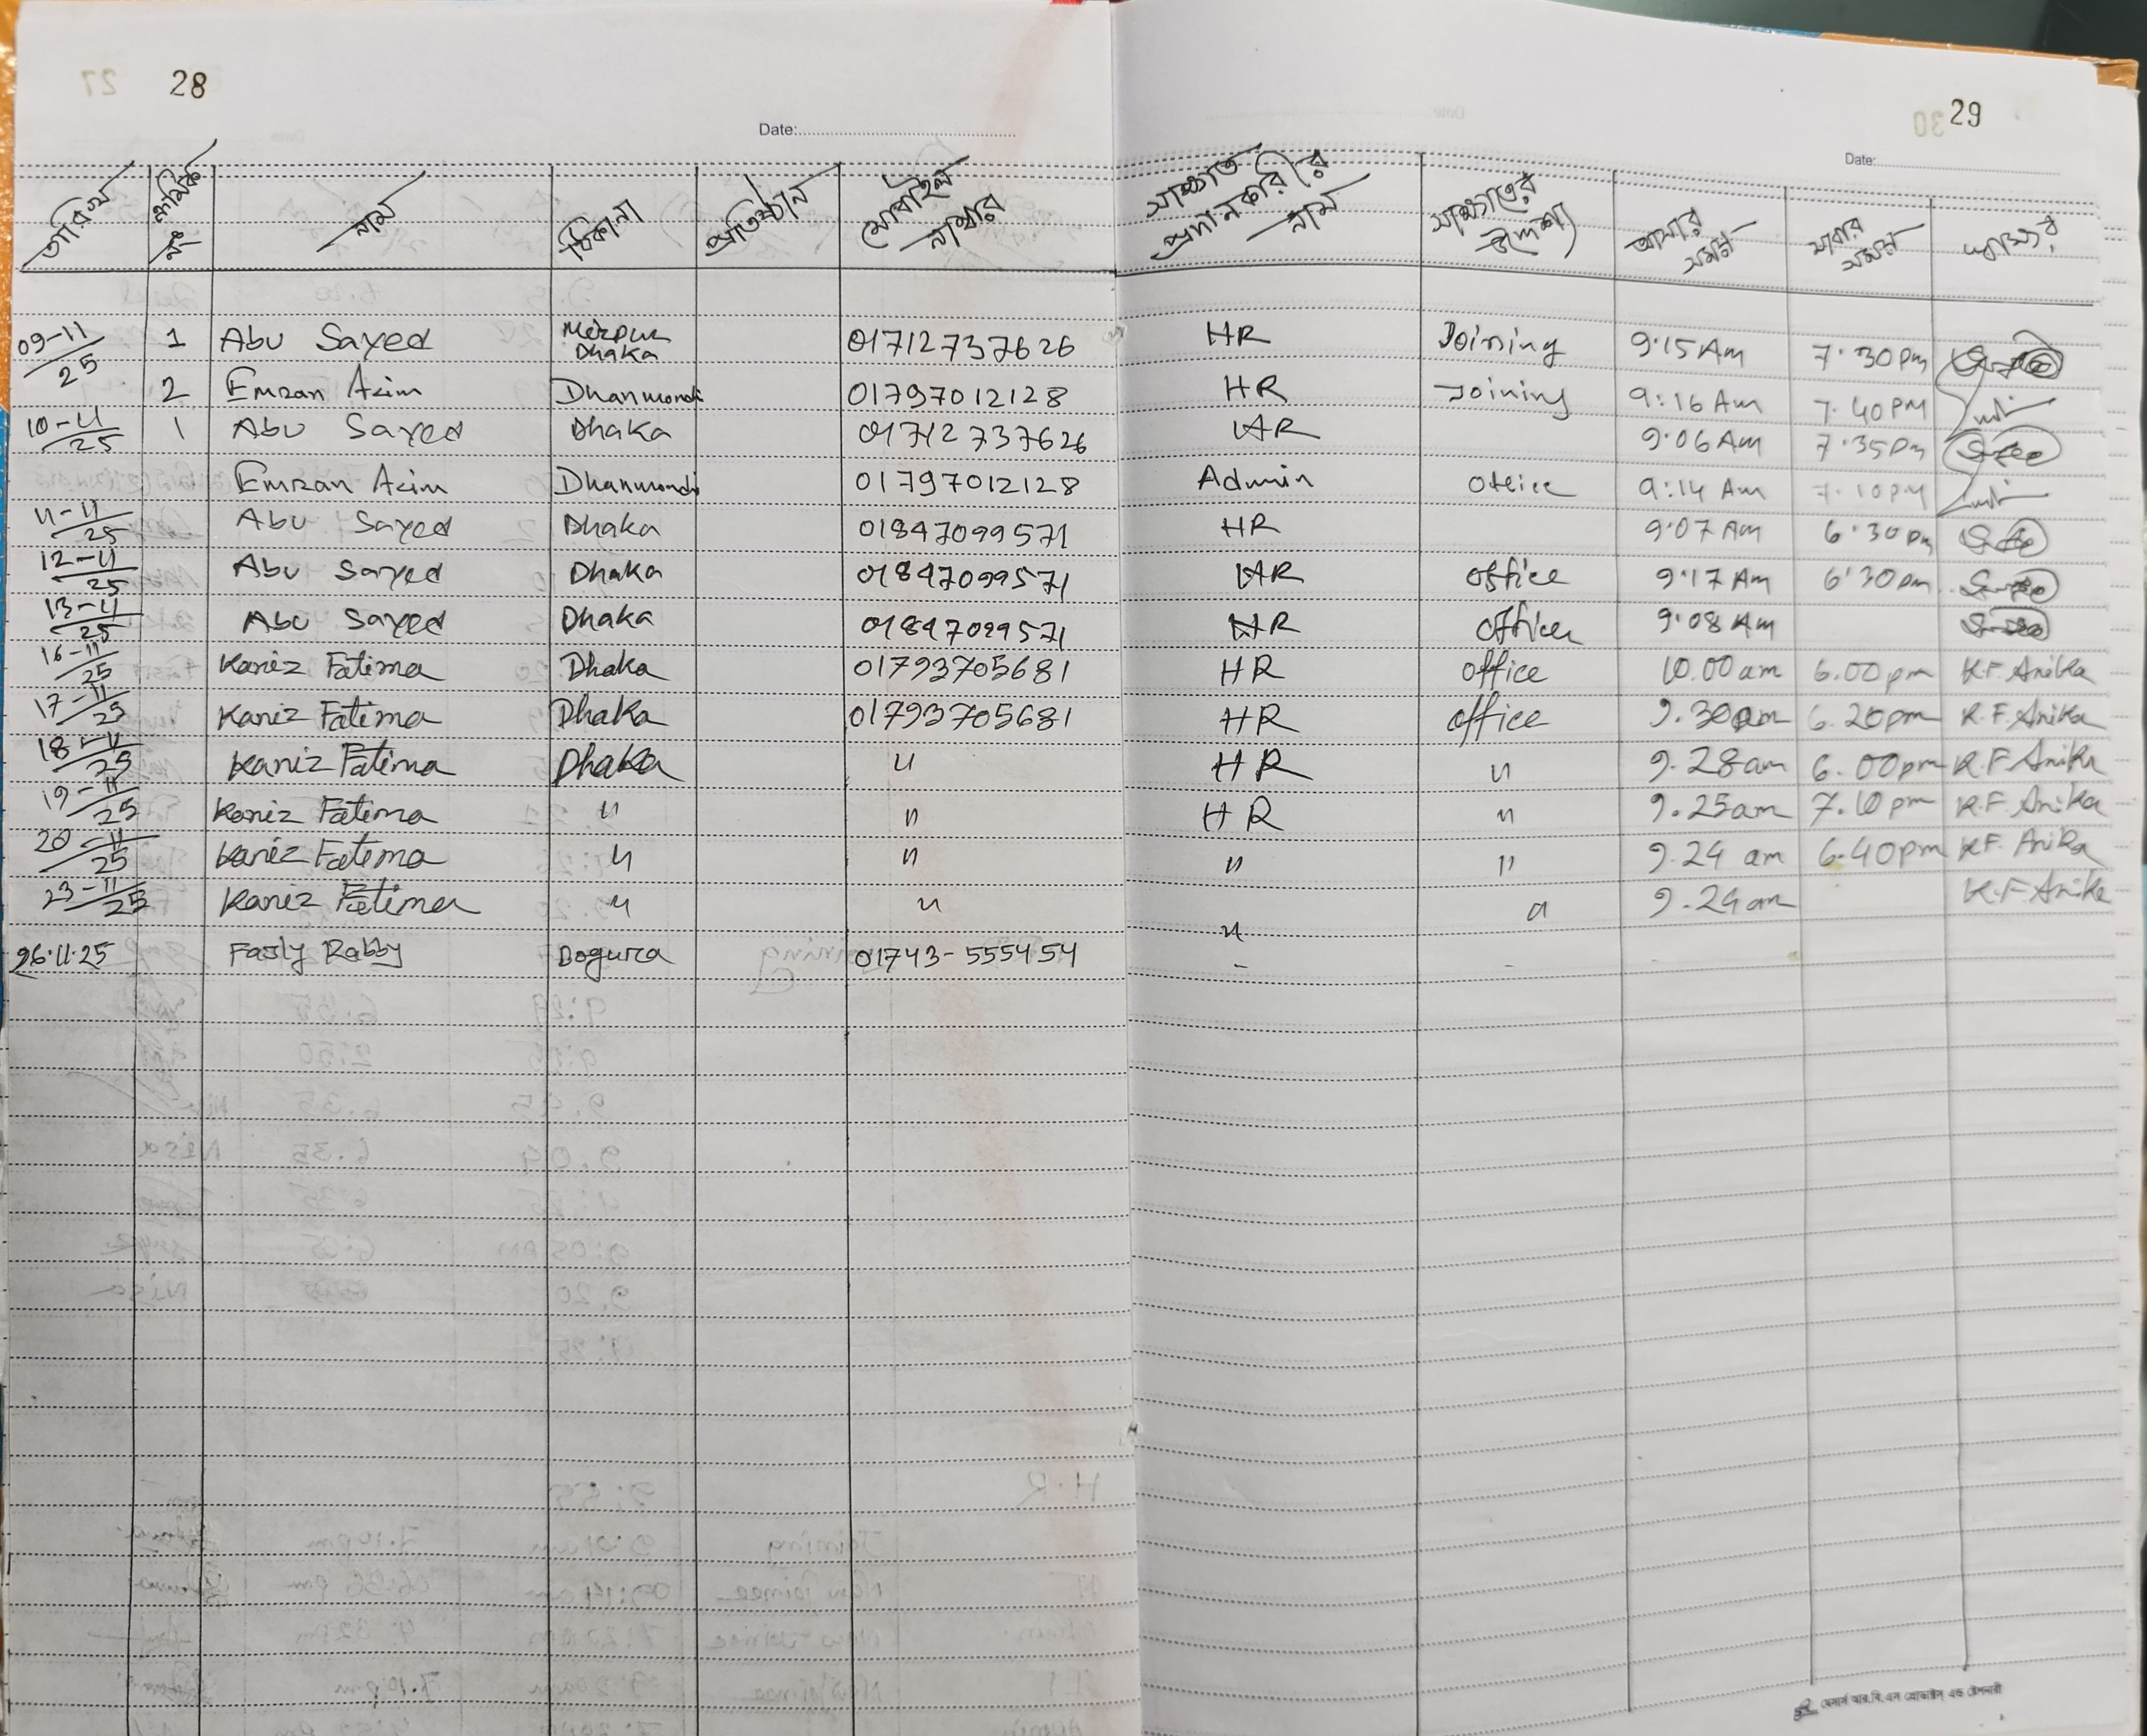 28
29
Date:
Date:
তারিখ ক্রমিক নং নাম ঠিকানা প্রতিষ্ঠান মোবাইল নাম্বার সাক্ষাত প্রদানকারীর নাম সাক্ষাতের উদ্দেশ্য আসার সময় যাবার সময় স্বাক্ষর
09-11/25 1 Abu Sayed Mirpur Dhaka 01712737626 HR Joining 9:15 Am 7:30 pm
2 Emran Azim Dhanmondi 01797012128 HR Joining 9:16 Am 7.40 PM
10-11/25 1 Abu Sayed Dhaka 01712737626 HR 9:06 Am 7:35 pm
Emran Azim Dhanmondi 01797012128 Admin Office 9:14 Am 7:10 PM
11-11/25 Abu Sayed Dhaka 01847099571 HR 9:07 Am 6:30 pm
12-11/25 Abu Sayed Dhaka 01847099571 HR office 9:17 Am 6:30 pm
13-11/25 Abu Sayed Dhaka 01847099571 HR office 9:08 Am
16-11/25 Kaniz Fatima Dhaka 01793705681 HR office 10.00 am 6.00 pm K.F. Anika
17-11/25 Kaniz Fatima Dhaka 01793705681 HR office 9.30 am 6.20 pm K.F. Anika
18-11/25 Kaniz Fatima Dhaka " HR " 9.28 am 6.00 pm K.F Anika
19-11/25 Kaniz Fatima " " HR " 9.25 am 7.10 pm K.F. Anika
20-11/25 Kaniz Fatima " " " " 9.24 am 6.40 pm K.F. Anika
23-11/25 Kaniz Fatima " " " " 9.24 am K.F Anika
26.11.25 Fazly Rabby Bogura 01743-555454 - -